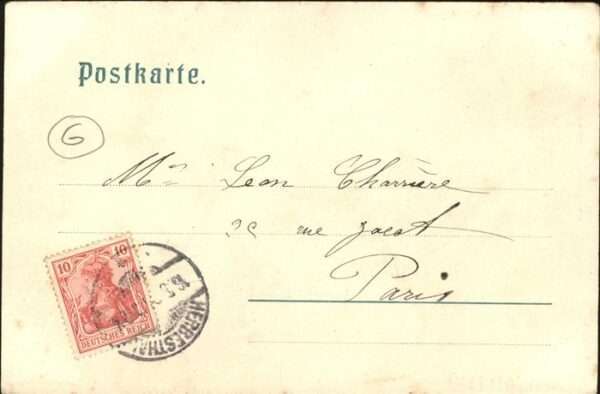 Postkarte.
6
Mr Leon Charrière
rue
Paris
10 10
DEUTSCHES REICH
HERBESTHAL